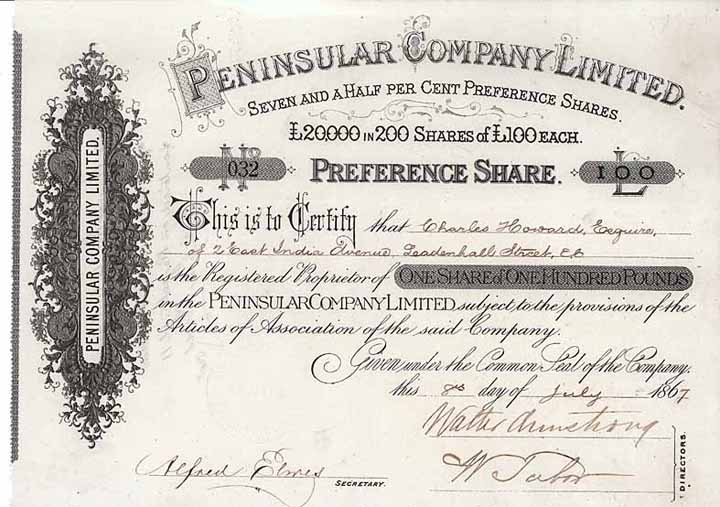 PENINSULAR COMPANY LIMITED.
PENINSULAR COMPANY LIMITED.
SEVEN AND A HALF PER CENT PREFERENCE SHARES.
£20,000 IN 200 SHARES of £100 EACH.
No 032
PREFERENCE SHARE.
£ 100
This is to Certify that Charles Howard, Esquire,
of 2 East India Avenue, Leadenhall Street, EC
is the Registered Proprietor of ONE SHARE of ONE HUNDRED POUNDS
in the PENINSULAR COMPANY LIMITED subject to the provisions of the
Articles of Association of the said Company.
Given under the Common Seal of the Company.
this day of July 1867
Walter Armstrong
Alfred Elwes
SECRETARY.
DIRECTORS.